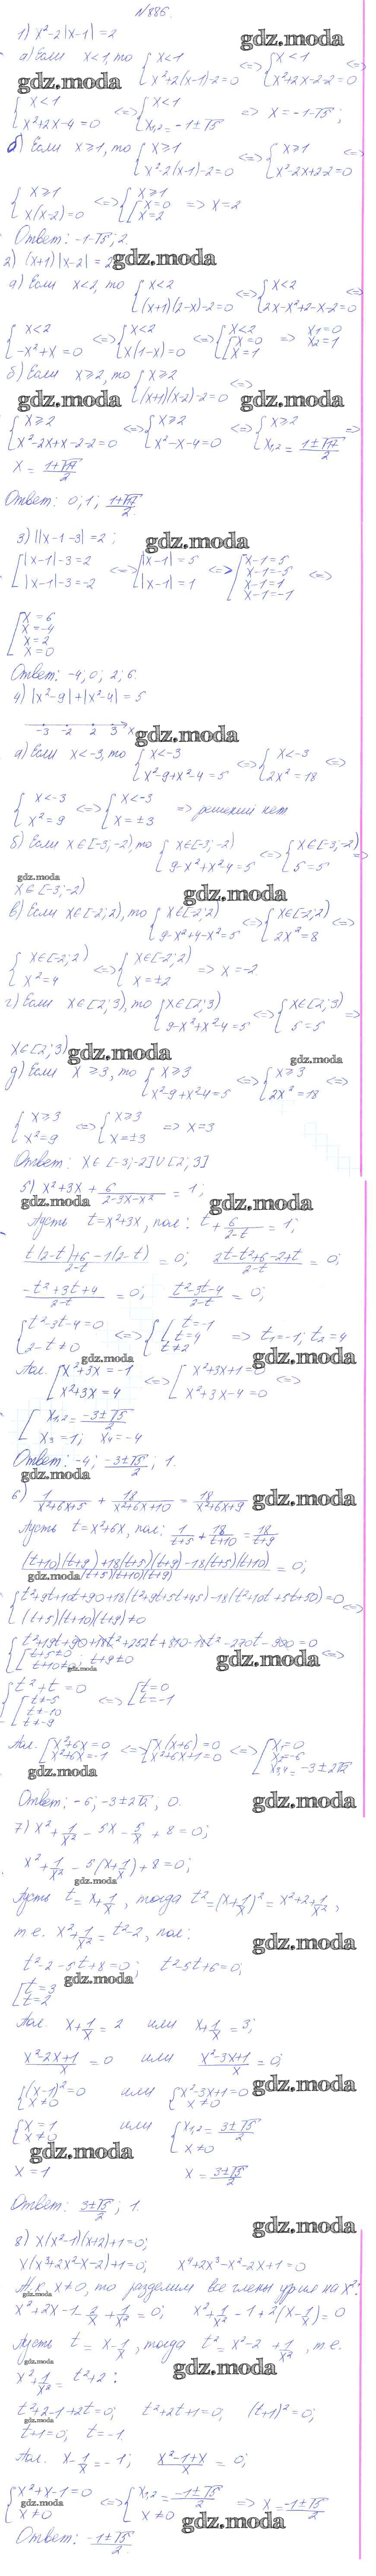 № 886.
1) x²-2|x-1|=2
а) Если x<1, то { x<1 ; x²+2(x-1)-2=0 <=> { x<1 ; x²+2x-2-2=0 <=>
{ x<1 ; x²+2x-4=0 <=> { x<1 ; x₁,₂=-1±√5 => x=-1-√5;
б) Если x≥1, то { x≥1 ; x²-2(x-1)-2=0 <=> { x≥1 ; x²-2x+2-2=0 <=>
{ x≥1 ; x(x-2)=0 <=> { x≥1 ; [ x=0 ; x=2 => x=2
Ответ: -1-√5; 2.
2) (x+1)|x-2|=2
а) Если x<2, то { x<2 ; (x+1)(2-x)-2=0 <=> { x<2 ; 2x-x²+2-x-2=0 <=>
{ x<2 ; -x²+x=0 <=> { x<2 ; x(1-x)=0 <=> { x<2 ; [ x=0 ; x=1 => x₁=0 x₂=1
б) Если x≥2, то { x≥2 ; (x+1)(x-2)-2=0 <=>
{ x≥2 ; x²-2x+x-2-2=0 <=> { x≥2 ; x²-x-4=0 <=> { x≥2 ; x₁,₂=(1±√17)/2 =>
x=(1+√17)/2
Ответ: 0; 1; (1+√17)/2.
3) ||x-1-3|=2;
[ |x-1|-3=2 ; |x-1|-3=-2 <=> [ |x-1|=5 ; |x-1|=1 <=> [ x-1=5 ; x-1=-5 ; x-1=1 ; x-1=-1 <=>
[ x=6 ; x=-4 ; x=2 ; x=0
Ответ: -4; 0; 2; 6.
4) |x²-9|+|x²-4|=5
-3 -2 2 3 x
а) Если x<-3, то { x<-3 ; x²-9+x²-4=5 <=> { x<-3 ; 2x²=18 <=>
{ x<-3 ; x²=9 <=> { x<-3 ; x=±3 => решений нет
б) Если x∈[-3;-2), то { x∈[-3;-2) ; 9-x²+x²-4=5 <=> { x∈[-3;-2) ; 5=5 =>
x∈[-3;-2)
в) Если x∈[-2;2), то { x∈[-2;2) ; 9-x²+4-x²=5 <=> { x∈[-2;2) ; 2x²=8 <=>
{ x∈[-2;2) ; x²=4 <=> { x∈[-2;2) ; x=±2 => x=-2
г) Если x∈[2;3), то { x∈[2;3) ; 9-x²+x²-4=5 <=> { x∈[2;3) ; 5=5 =>
x∈[2;3)
д) Если x≥3, то { x≥3 ; x²-9+x²-4=5 <=> { x≥3 ; 2x²=18 <=>
{ x≥3 ; x²=9 <=> { x≥3 ; x=±3 => x=3
Ответ: x∈[-3;-2]∪[2;3]
5) x²+3x+6/(2-3x-x²)=1;
Пусть t=x²+3x, пол: t+6/(2-t)=1;
(t(2-t)+6-1(2-t))/(2-t)=0; (2t-t²+6-2+t)/(2-t)=0;
(-t²+3t+4)/(2-t)=0; (t²-3t-4)/(2-t)=0;
{ t²-3t-4=0 ; 2-t≠0 <=> { [ t=-1 ; t=4 ; t≠2 => t₁=-1; t₂=4
Пол. [ x²+3x=-1 ; x²+3x=4 <=> [ x²+3x+1=0 ; x²+3x-4=0 <=>
[ x₁,₂=(-3±√5)/2 ; x₃=1; x₄=-4
Ответ: -4; (-3±√5)/2; 1.
6) 1/(x²+6x+5) + 18/(x²+6x+10) = 18/(x²+6x+9)
Пусть t=x²+6x, пол: 1/(t+5)+18/(t+10)=18/(t+9)
((t+10)(t+9)+18(t+5)(t+9)-18(t+5)(t+10))/((t+5)(t+10)(t+9))=0;
{ t²+9t+10t+90+18(t²+9t+5t+45)-18(t²+10t+5t+50)=0 ; (t+5)(t+10)(t+9)≠0 <=>
{ t²+19t+90+18t²+252t+810-18t²-270t-900=0 ; [ t+5≠0 ; t+10≠0; t+9≠0 <=>
{ t²+t=0 ; [ t≠-5 ; t≠-10 ; t≠-9 <=> [ t=0 ; t=-1
Пол. [ x²+6x=0 ; x²+6x=-1 <=> [ x(x+6)=0 ; x²+6x+1=0 <=> [ x₁=0 ; x₂=-6 ; x₃,₄=-3±2√2
Ответ: -6; -3±2√2, 0.
7) x²+1/x²-5x-5/x+8=0;
x²+1/x²-5(x+1/x)+8=0;
Пусть t=x+1/x, тогда t²=(x+1/x)²=x²+2+1/x²,
т.е. x²+1/x²=t²-2, пол:
t²-2-5t+8=0; t²-5t+6=0;
[ t=3 ; t=2
Пол. x+1/x=2 или x+1/x=3;
(x²-2x+1)/x=0 или (x²-3x+1)/x=0;
{ (x-1)²=0 ; x≠0 или { x²-3x+1=0 ; x≠0
{ x=1 ; x≠0 или { x₁,₂=(3±√5)/2 ; x≠0
x=1 x=(3±√5)/2
Ответ: (3±√5)/2; 1.
8) x(x²-1)(x+2)+1=0;
x(x³+2x²-x-2)+1=0; x⁴+2x³-x²-2x+1=0
Т.к. x≠0, то разделим все члены ур-ия на x²:
x²+2x-1-2/x+1/x²=0; x²+1/x²-1+2(x-1/x)=0
Пусть t=x-1/x, тогда t²=x²-2+1/x², т.е.
x²+1/x²=t²+2:
t²+2-1+2t=0; t²+2t+1=0; (t+1)²=0;
t+1=0; t=-1.
Пол. x-1/x=-1; (x²-1+x)/x=0;
{ x²+x-1=0 ; x≠0 <=> { x₁,₂=(-1±√5)/2 ; x≠0 => x=(-1±√5)/2
Ответ: (-1±√5)/2.
gdz.moda